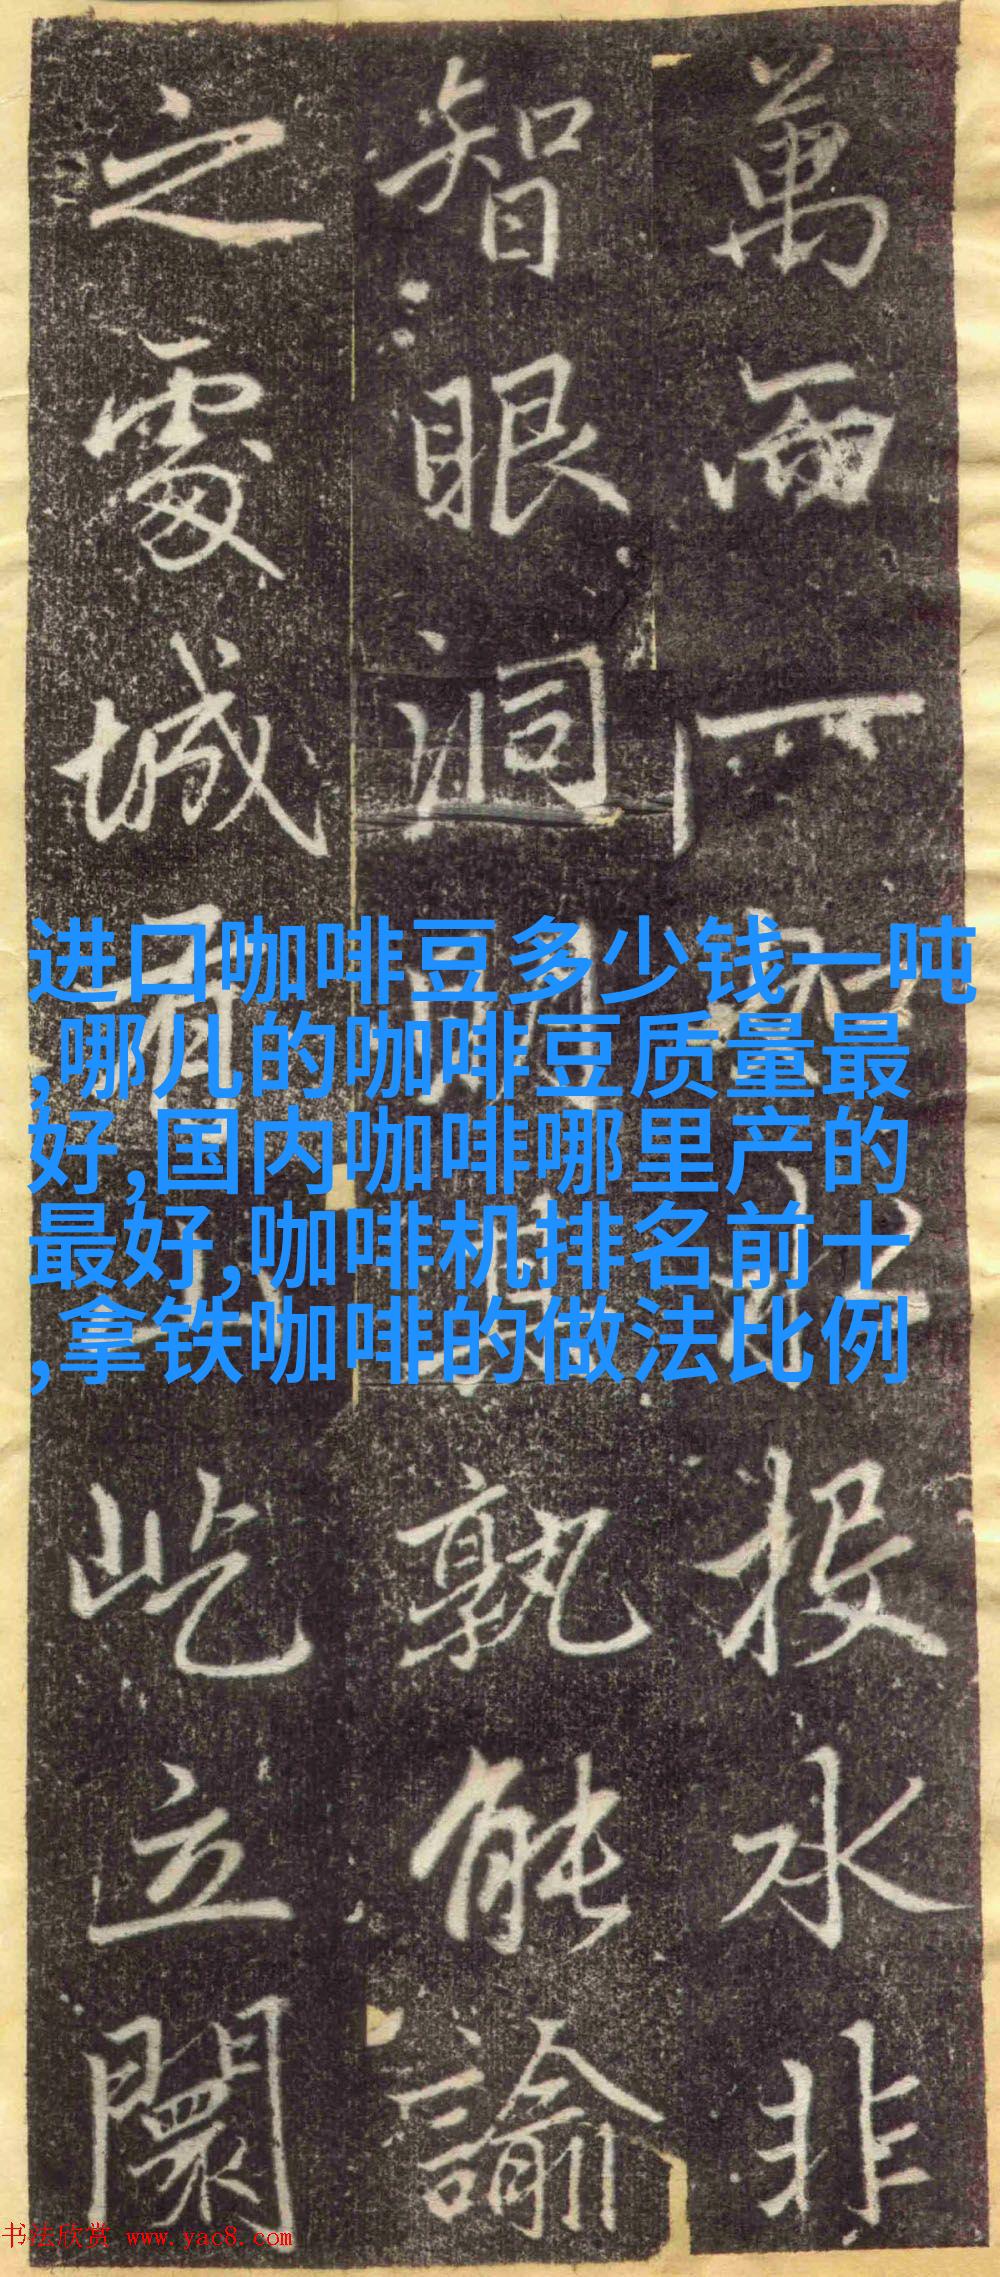 萬而一投水非
智眼洞開其孰能諭
之城有屹立闤
进口咖啡豆多少钱一吨
,哪儿的咖啡豆质量最
好,国内咖啡哪里产的
最好,咖啡机排名前十
,拿铁咖啡的做法比例
书法欣赏 www.yac8.com